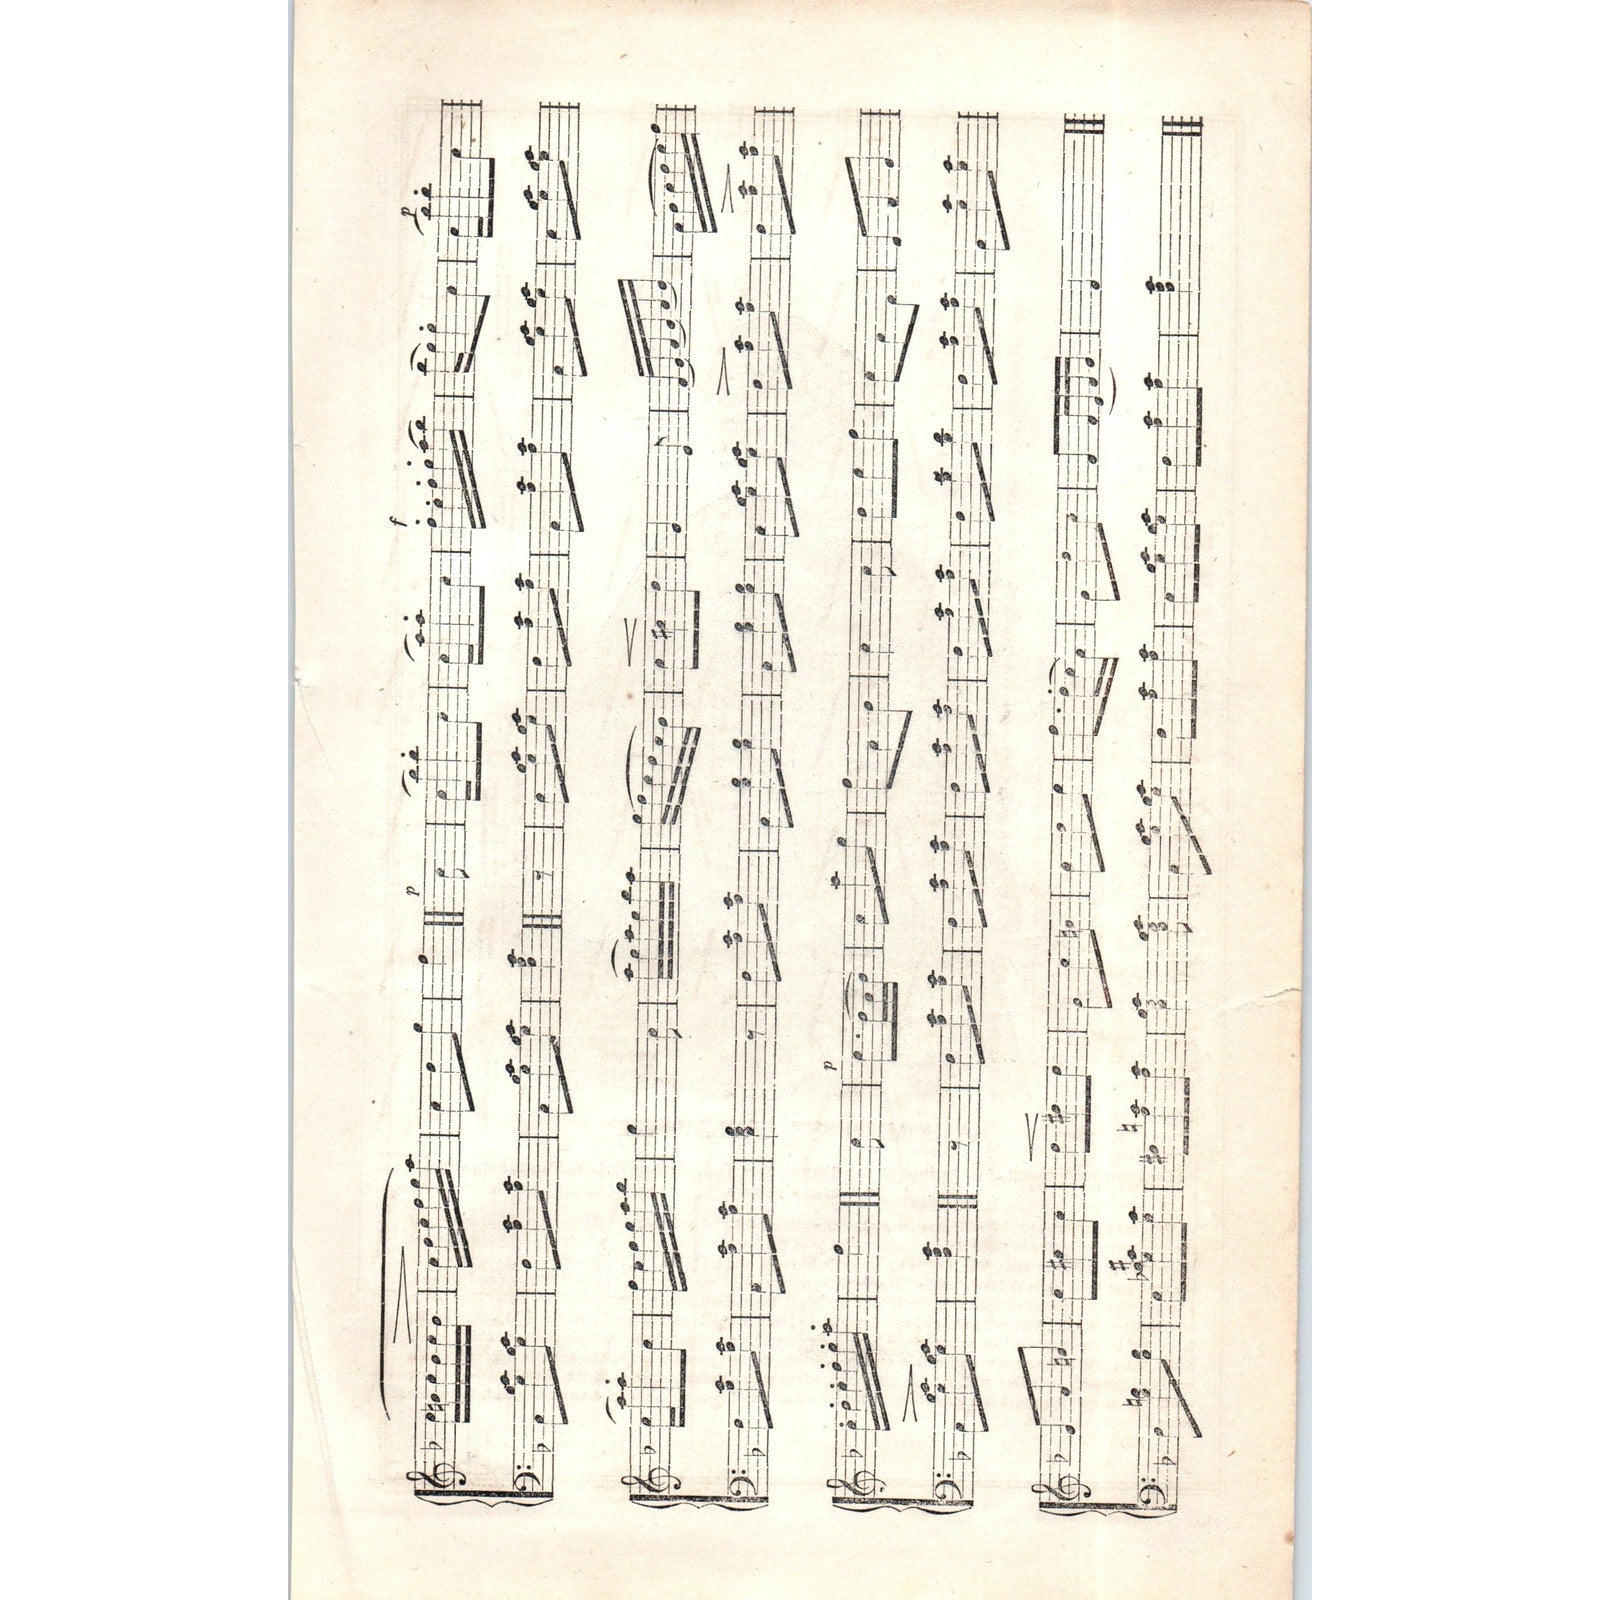 f p
p
p